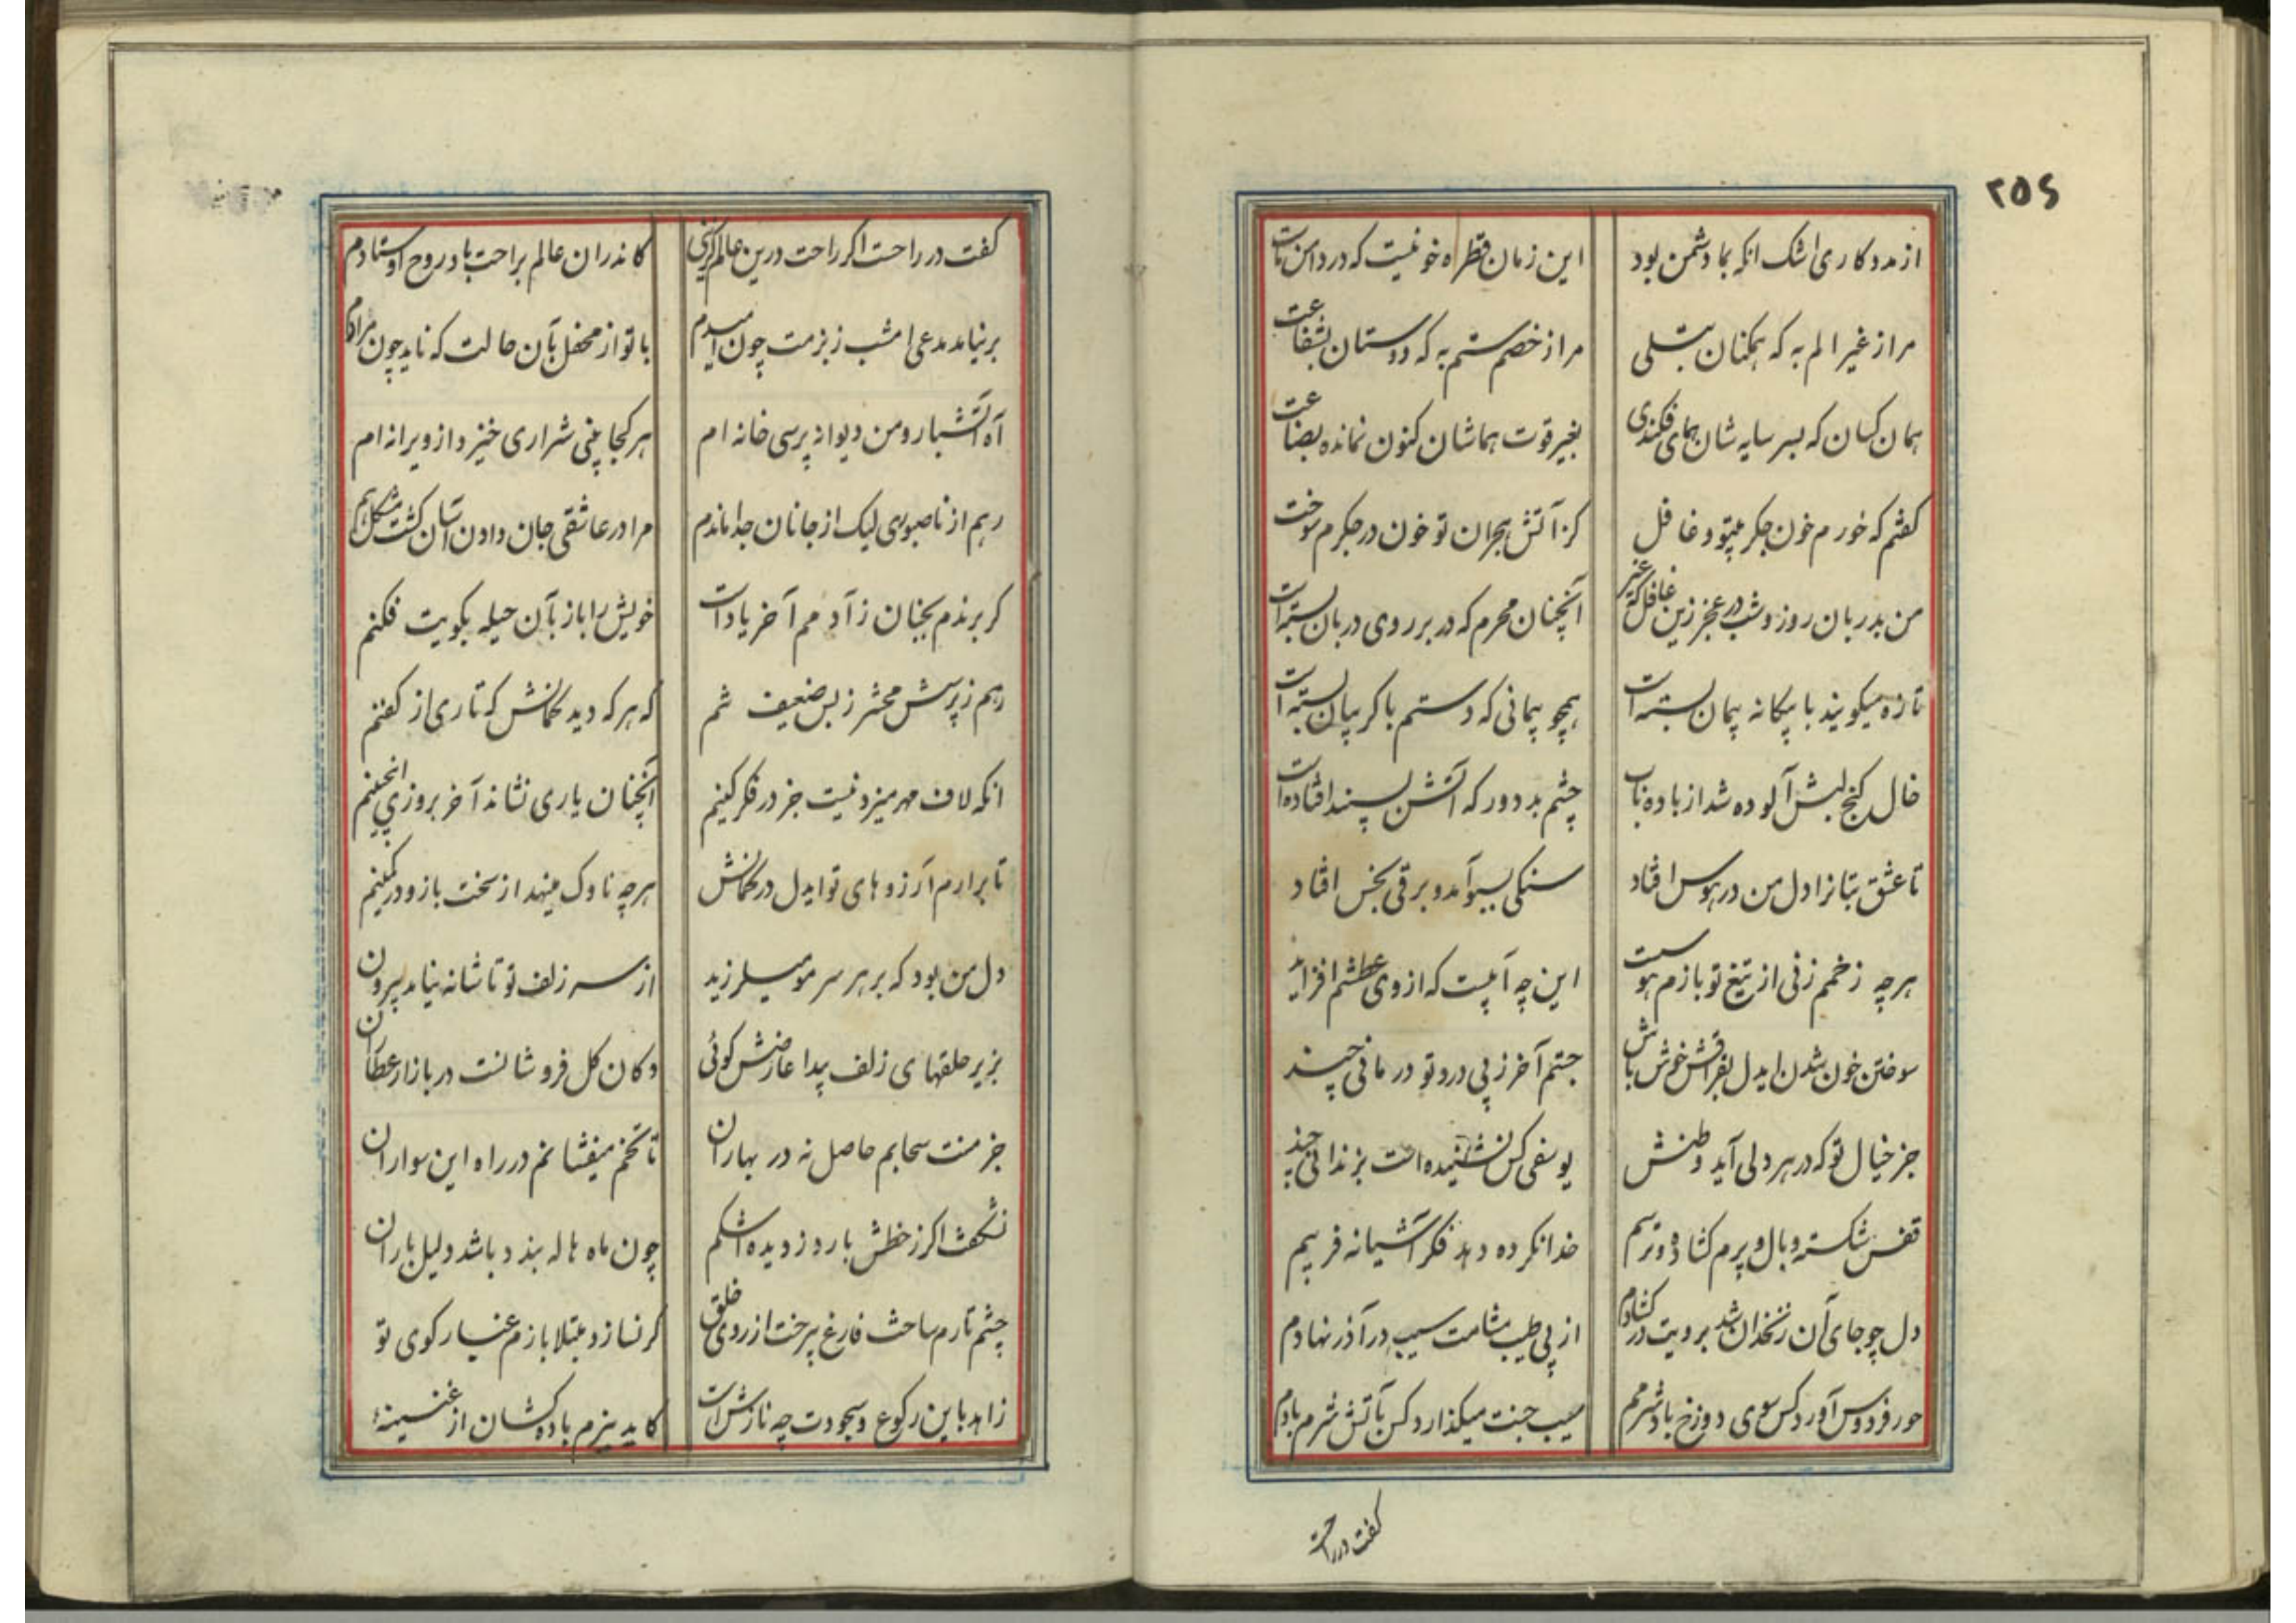 ۲۵۶
از مددکاری اشک انکه بما دشمن بود
این زمان قطره خونیست که در دامن ماست
مرا ز غیر الم به که همکنان بتسلی
مرا ز خصم ستم به که دوستان بشفاعت
همان کسان که بسر سایه شان همای فکندی
بغیر قوت هماشان کنون نمانده بضاعت
کفتم که خورم خون جکر بیتو و غافل
کز آتش هجران تو خون در جکرم سوخت
من بدربان روز و شب در عجز زین غافل که غیر
آنچنان محرم که در بر روی دربان بسته است
تازه میکویند با بیکانه پیمان بسته است
همچو پیمانی که دستم با کریبان بسته است
خال کنج لبش آلوده شد از باده ناب
چشم بد دور که آتش بسپند افتاده است
تا عشق بتانرا دل من در هوس افتاد
سنکی بسبو آمد و برقی بخس افتاد
هر چه زخمم زنی از تیغ تو بازم هوست
این چه آبیست که از وی عطشم افزاید
سوختن خون شدن ایدل بفراقش خوش باش
جستم آخر ز پی درد تو درمانی چند
جز خیال تو که در هر دلی آید وطنش
یوسفی کس نشنیده است بزندانی چند
قفس شکسته و بال و پرم کشاده و ترسم
خدا نکرده دهد فکر آشیانه فریبم
دل چو جای آن زنخدان شد برویت در کشادم
از پی طیب مشامت سیب در آذر نهادم
حور فردوس آورد کس سوی دوزخ باد شرمم
سیب جنت میکذارد کس بآتش شرم بادم
کفت در راحت
کفت در راحت اکر راحت درین عالم کزینی
کاندران عالم براحت باد روح اوستادم
برنیامد مدعی امشب ز بزمت چون امیدم
با تو از محفل بآن حالت که ناید چون مرادم
آه آتشبار و من دیوانه پرسی خانه ام
هر کجا بینی شراری خیزد از ویرانه ام
رهم از ناصبوری لیک از جانان جدا ماندم
مرا در عاشقی جان دادن آسان کشت مشکل هم
کر برندم بجنان ز آدمم آخر یاد است
خویش را باز بآن حیله بکویت فکنم
رهم ز پرسش محشر ز بس ضعیف شم
که هر که دید کمانش که تاری از کفنم
انکه لاف مهر میزد نیست جز در فکر کینم
آنچنان یاری نشاند آخر بروزی اینچنینم
تا برارم آرزوهای تو ایدل در کمانش
هر چه ناوک مینهد از سخت بازو در کمینم
دل من بود که بر هر سر مو میلرزید
از سر زلف تو تا شانه نیامد بیرون
بزیر حلقهای زلف پیدا عارضش کوئی
دکان کل فروشانست در بازار عطاران
جز منت سحابم حاصل نه در بهاران
تا تخم میفشانم در راه این سواران
نشکفت اکر ز خطش بارد ز دیده اشکم
چون ماه هاله بندد باشد دلیل باران
چشم تارم ساخت فارغ پرخت از روی خلق
کر نسازد مبتلا بازم غبار کوی تو
زاهد باین رکوع و سجودت چه نازش است
کاید ببزم باده کشان از